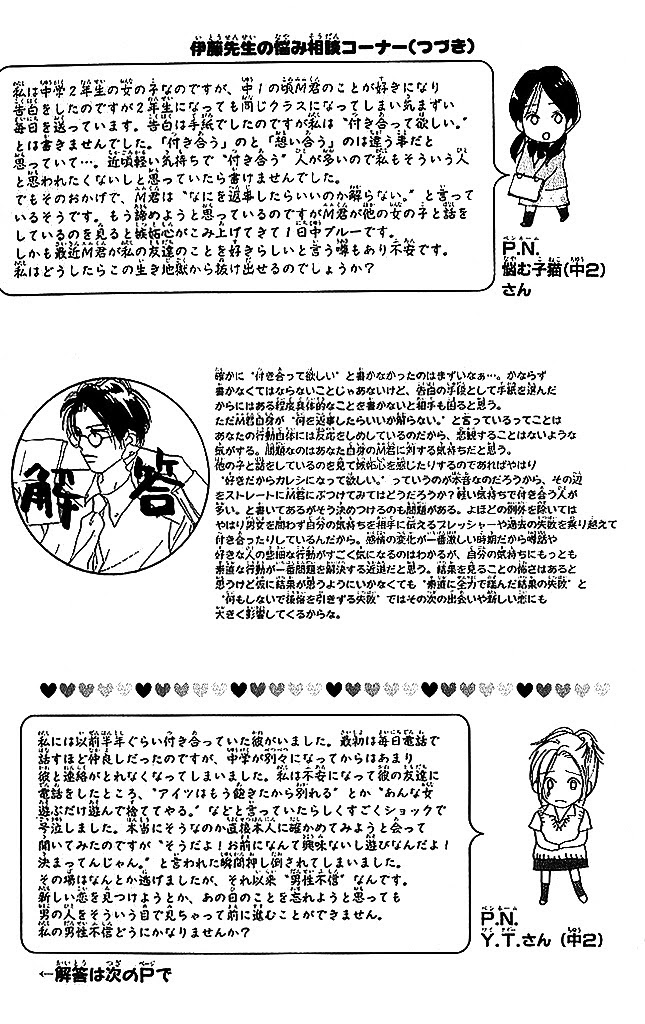 伊藤先生の悩み相談コーナー(つづき)
私は中学2年生の女の子なのですが、中1の頃M君のことが好きになり
告白をしたのですが2年生になっても同じクラスになってしまい気まずい
毎日を送っています。告白は手紙でしたのですが私は“付き合って欲しい。”
とは書きませんでした。「付き合う」のと「想い合う」のは違う事だと
思っていて…。近頃軽い気持ちで“付き合う”人が多いので私もそういう人
と思われたくないしと思っていたら書けませんでした。
でもそのおかげで、M君は“なにを返事したらいいのか解らない。”と言って
いるそうです。もう諦めようと思っているのですがM君が他の女の子と話を
しているのを見ると嫉妬心がこみ上げてきて1日中ブルーです。
しかも最近M君が私の友達のことを好きらしいと言う噂もあり不安です。
私はどうしたらこの生き地獄から抜け出せるのでしょうか?
P.N.
悩む子猫(中2)
さん
解答
確かに“付き合って欲しい”と書かなかったのはまずいなぁ…。かならず
書かなくてはならないことじゃあないけど、告白の手段として手紙を選んだ
からにはある程度具体的なことを書かないと相手も困ると思う。
ただM君自身が“何を返事したらいいか解らない。”と言っているってことは
あなたの行動自体には反応をしめしているのだから、悲観することはないような
気がする。問題なのはあなた自身のM君に対する気持ちだと思う。
他の子と話をしているのを見て嫉妬心を感じたりするのであればやはり
“好きだからカレシになって欲しい。”っていうのが本音なのだろうから、その辺
をストレートにM君にぶつけてみてはどうだろうか?軽い気持ちで付き合う人が
多い。と書いてあるがそう決めつけるのも問題がある。よほどの例外を除いては
やはり男女を問わず自分の気持ちを相手に伝えるプレッシャーや過去の失敗を乗り越えて
付き合ったりしているんだから。感情の変化が一番激しい時期だから噂話や
好きな人の些細な行動がすごく気になるのはわかるが、自分の気持ちにもっとも
素直な行動が一番問題を解決する近道だと思う。結果を見ることの怖さはあると
思うけど仮に結果が思うようにいかなくても“素直に全力で臨んだ結果の失敗”と
“何もしないで後悔を引きずる失敗”ではその次の出会いや新しい恋にも
大きく影響してくるからな。
私には以前半年ぐらい付き合っていた彼がいました。最初は毎日電話で
話すほど仲良しだったのですが、中学が別々になってからはあまり
彼と連絡がとれなくなってしまいました。私は不安になって彼の友達に
電話をしたところ、“アイツはもう飽きたから別れる”とか“あんな女
遊ぶだけ遊んで捨ててやる。”などと言っていたらしくすごくショックで
号泣しました。本当にそうなのか直接本人に確かめてみようと会って
聞いてみたのですが“そうだよ!お前になんて興味ないし遊びなんだよ!
決まってんじゃん。”と言われた瞬間押し倒されてしまいました。
その場はなんとか逃げましたが、それ以来“男性不信”なんです。
新しい恋を見つけようとか、あの日のことを忘れようと思っても
男の人をそういう目で見ちゃって前に進むことができません。
私の男性不信どうにかなりませんか?
P.N.
Y.T.さん(中2)
←解答は次のPで